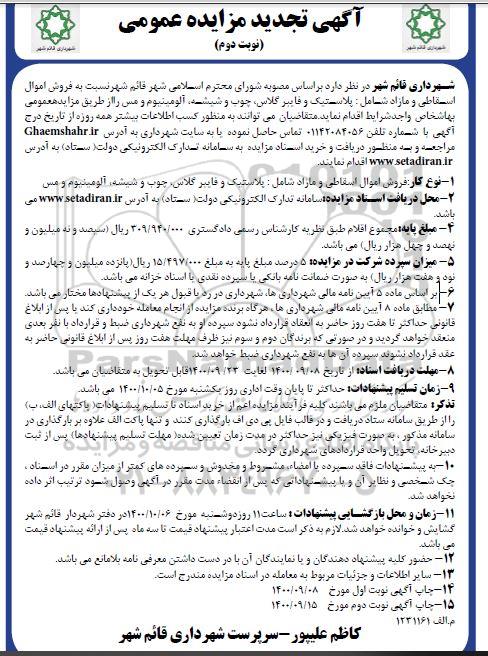 آگهی تجدید مزایده عمومی
(نوبت دوم)
شهرداری قائم شهر
شهرداری قائم شهر
شهرداری قائم شهر در نظر دارد براساس مصوبه شورای محترم اسلامی شهر قائم شهرنسبت به فروش اموال
اسقاطی و مازاد شامل : پلاستیک و فایبر گلاس، چوب و شیشه، آلومینیوم و مس رااز طریق مزایدهعمومی
بهاشخاص واجدشرایط اقدام نماید.متقاضیان می توانند به منظور کسب اطلاعات بیشتر همه روزه از تاریخ درج
آگهی با شماره تلفن ۰۱۱۴۲۰۸۴۰۵۶ تماس حاصل نموده یا به سایت شهرداری به آدرس Ghaemshahr.ir
مراجعه و به منظور دریافت و خرید اسناد مزایده به سامانه تدارک الکترونیکی دولت( ستاد) به آدرس
www.setadiran.ir اقدام نمایند.
۱-نوع کار:فروش اموال اسقاطی و مازاد شامل : پلاستیک و فایبر گلاس، چوب و شیشه، آلومینیوم و مس
۲-محل دریافت اسناد مزایده:سامانه تدارک الکترونیکی دولت( ستاد) به آدرس www.setadiran.ir می
باشد.
۴- مبلغ پایه:مجموع اقلام طبق نظریه کارشناس رسمی دادگستری ۳۰۹/۹۴۰/۰۰۰ ریال( سیصد و نه میلیون و
نهصد و چهل هزار ریال) می باشد.
۵- میزان سپرده شرکت در مزایده: ۵ درصد مبلغ پایه به مبلغ ۱۵/۴۹۷/۰۰۰ ریال(پانزده میلیون و چهارصد و
نود و هفت هزار ریال) به صورت ضمانت نامه بانکی یا سپرده نقدی یا اسناد خزانه می باشد.
۶-بر اساس ماده ۵ آیین نامه مالی شهرداری ها، شهرداری در رد یا قبول هر یک از پیشنهادها مختار می باشد.
۷- مطابق ماده ۸ آیین نامه مالی شهرداری ها ، هرگاه برنده مزایده از انجام معامله خودداری کند یا پس از ابلاغ
قانونی حداکثر تا هفت روز حاضر به انعقاد قرارداد نشود سپرده او به نفع شهرداری ضبط و قرارداد با نفر بعدی
منعقد خواهد گردید و در صورتی که برندگان دوم و سوم نیز ظرف مهلت هفت روز پس از ابلاغ قانونی حاضر به
عقد قرارداد نشوند سپرده آن ها به نفع شهرداری ضبط خواهد شد.
۸-مهلت دریافت اسناد: از تاریخ ۱۴۰۰/۰۹/۰۸ لغایت ۱۴۰۰/۰۹/۲۳قابل تحویل به متقاضیان می باشد.
۹-زمان تسلیم پیشنهادات: حداکثر تا پایان وقت اداری روز یکشنبه مورخ ۱۴۰۰/۱۰/۰۵ می باشد.
تذکر: متقاضیان ملزم می باشند کلیه فرآیند مزایده اعم از خرید اسناد تا تسلیم پیشنهادات( پاکتهای الف، ب)
را از طریق سامانه ستاد دریافت و در قالب فایل پی دی اف بارگذاری کنند و تنها پاکت الف علاوه بر بارگذاری در
سامانه مذکور ، به صورت فیزیکی نیز حداکثر در مدت زمان تعیین شده( مهلت تسلیم پیشنهادها) پس از ثبت
دبیرخانه، تحویل واحد قراردادهای شهرداری گردد.
۱۰-به پیشنهادات فاقد سپرده یا امضاء، مشروط و مخدوش و سپرده های کمتر از میزان مقرر در اسناد ،
چک شخصی و نظایر آن و یا پیشنهاداتی که پس از انقضاء مدت مقرر در آگهی وصول شود ترتیب اثر داده
نخواهد شد.
۱۱-زمان و محل بازگشایی پیشنهادات : ساعت۱۱ روزدوشنبه مورخ ۱۴۰۰/۱۰/۰۶در دفتر شهردار قائم شهر
گشایش و خوانده خواهد شد.لازم به ذکر است مدت اعتبار پیشنهاد قیمت تا سه ماه پس از ارائه پیشنهاد قیمت
می باشد.
۱۲- حضور کلیه پیشنهاد دهندگان و یا نمایندگان آن با در دست داشتن معرفی نامه بلامانع می باشد.
۱۳- سایر اطلاعات و جزئیات مربوط به معامله در اسناد مزایده مندرج است.
۱۴-چاپ آگهی نوبت اول مورخ ۱۴۰۰/۰۹/۰۸
۱۵-چاپ آگهی نوبت دوم مورخ ۱۴۰۰/۰۹/۱۵
م.الف ۱۲۳۱۱۶۱
کاظم علیپور-سرپرست شهرداری قائم شهر